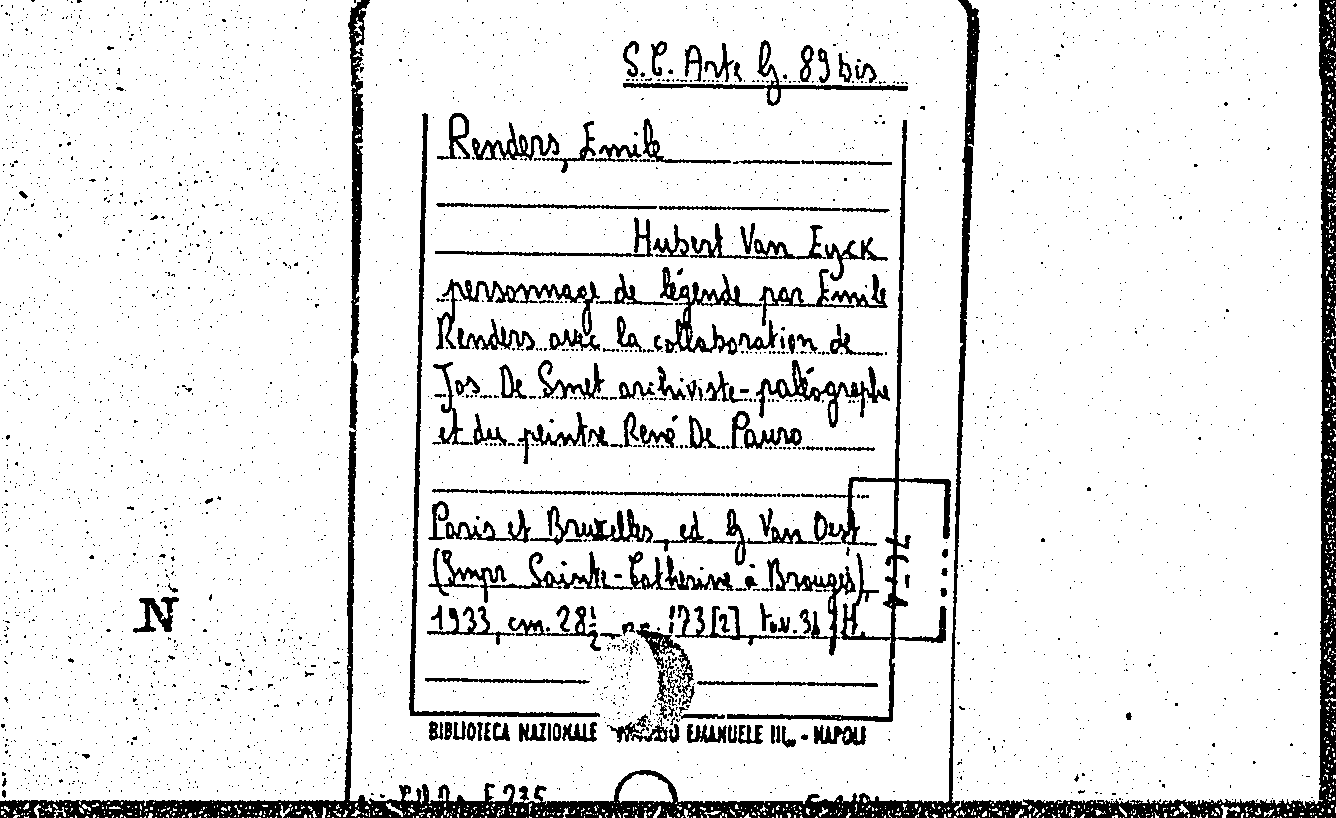 S.C. Arte G. 89 bis
Renders, Emile
Hubert Van Eyck
personnage de légende par Emile
Renders avec la collaboration de
Jos De Smet archiviste-paléographe
et du peintre René De Pauw
Paris et Bruxelles, ed. G. Van Oest
(Impr. Sainte-Catherine à Brouges),
1933, cm. 28½ pp. 173[2], tav. 36
N
BIBLIOTECA NAZIONALE EMANUELE III„ - NAPOLI